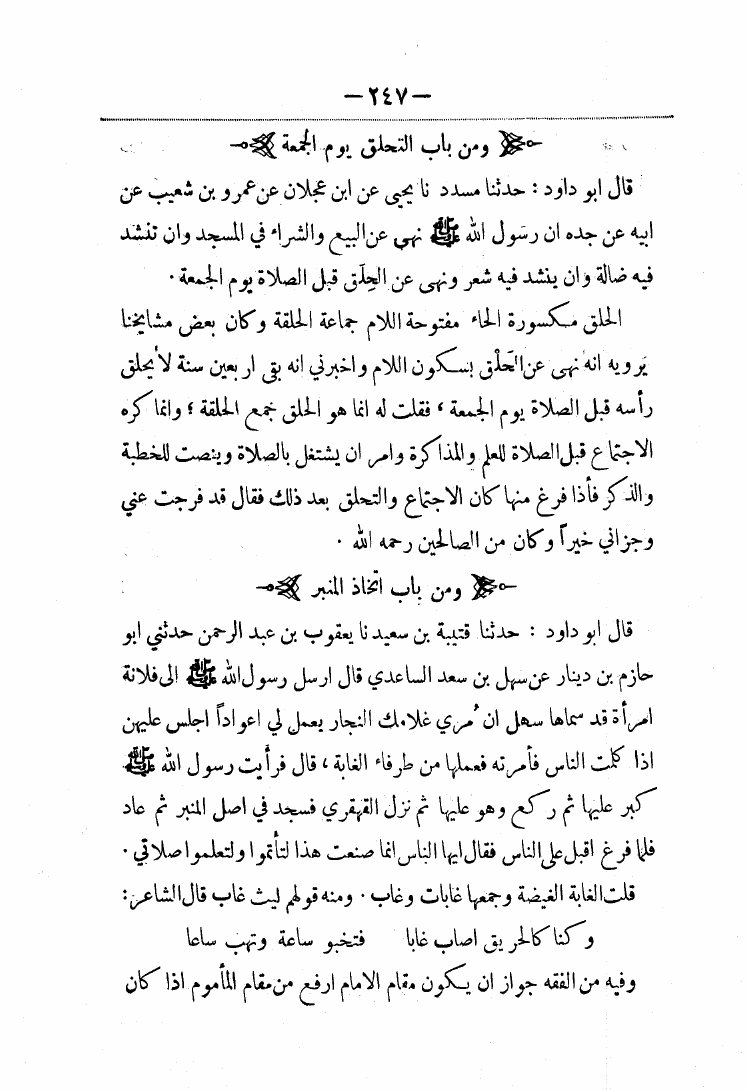 — ٢٤٧ —
ومن باب التحلق يوم الجمعة
قال ابو داود : حدثنا مسدد نا يحيى عن ابن عجلان عن عمرو بن شعيب عن
ابيه عن جده ان رسول الله ﷺ نهى عن البيع والشراء في المسجد وان تنشد
فيه ضالة وان ينشد فيه شعر ونهى عن الحِلَق قبل الصلاة يوم الجمعة .
الحلق مكسورة الحاء مفتوحة اللام جماعة الحلقة وكان بعض مشايخنا
يَرويه انه نهى عن الحَلْق بسكون اللام واخبرني انه بقي اربعين سنة لا يحلق
رأسه قبل الصلاة يوم الجمعة ، فقلت له انما هو الحلق جمع الحلقة ؛ وانما كره
الاجتماع قبل الصلاة للعلم والمذاكرة وامر ان يشتغل بالصلاة وينصت للخطبة
والذكر فأذا فرغ منها كان الاجتماع والتحلق بعد ذلك فقال قد فرجت عني
وجزاني خيراً وكان من الصالحين رحمه الله .
ومن باب اتخاذ المنبر
قال ابو داود : حدثنا قتيبة بن سعيد نا يعقوب بن عبد الرحمن حدثني ابو
حازم بن دينار عن سهل بن سعد الساعدي قال ارسل رسول الله ﷺ الى فلانة
امرأة قد سماها سهل ان مُري غلامك النجار يعمل لي اعواداً اجلس عليهن
اذا كلمت الناس فأمرته فعملها من طرفاء الغابة ، قال فرأيت رسول الله ﷺ
كبر عليها ثم ركع وهو عليها ثم نزل القهقري فسجد في اصل المنبر ثم عاد
فلما فرغ اقبل على الناس فقال ايها الناس انما صنعت هذا لتأتموا ولتعلموا صلاتي .
قلت الغابة الغيضة وجمعها غابات وغاب . ومنه قولهم ليث غاب قال الشاعر :
وكنا كالحريق اصاب غابا فتخبو ساعة وتهب ساعا
وفيه من الفقه جواز ان يكون مقام الامام ارفع من مقام المأموم اذا كان